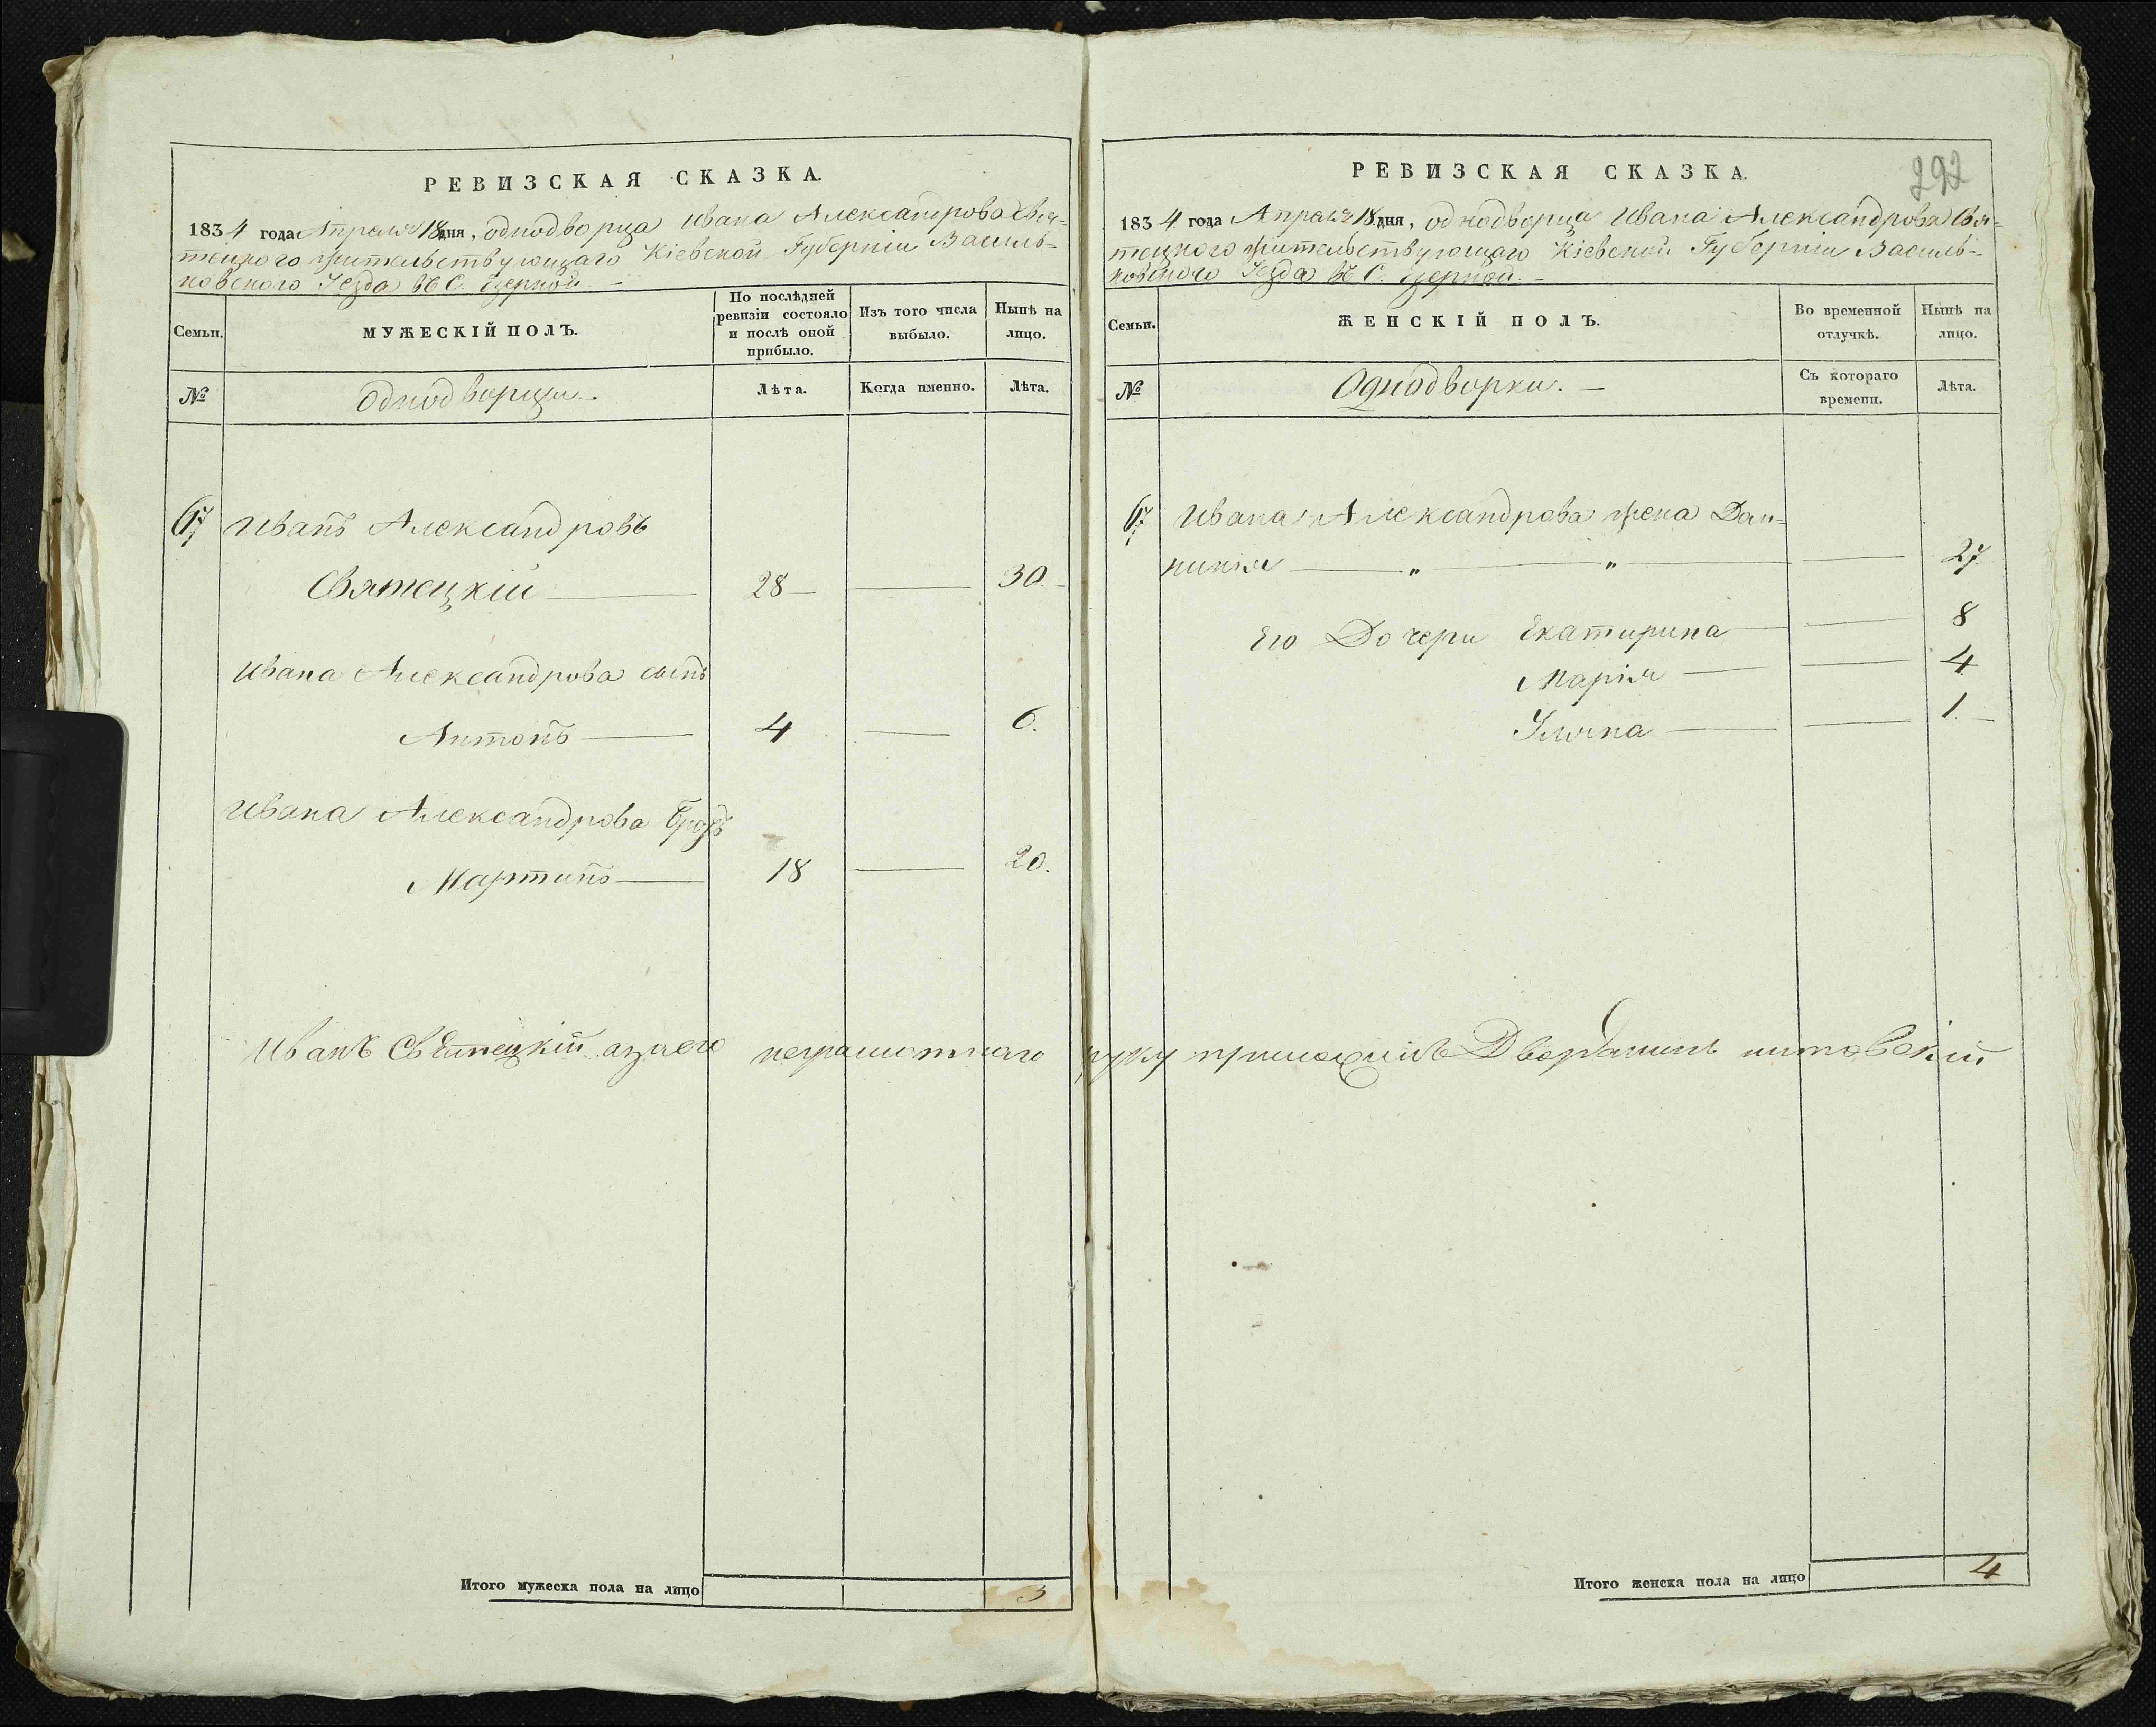 РЕВИЗСКАЯ СКАЗКА.
1834 года Апреля 18 дня, однодворца Ивана Александрова Свя-
тецкого жительствующаго Кіевской Губерніи Василь-
ковского Уезда въ С. Езерной. —
Семьи.
МУЖЕСКІЙ ПОЛЪ.
По послѣдней ревизіи состояло и послѣ оной прибыло.
Изъ того числа выбыло.
Нынѣ на лицо.
№
Однодворцы.
Лѣта.
Когда именно.
Лѣта.
67 Иванъ Александровъ
Святецкій — 28 — 30.
Ивана Александрова сынъ
Антонъ — 4 — 6.
Ивана Александрова братъ
Мартинъ — 18 — 20.
Итого мужеска пола на лицо 3
292
РЕВИЗСКАЯ СКАЗКА.
1834 года Апреля 18 дня, однодворца Ивана Александрова Свя-
тецкого жительствующаго Кіевской Губерніи Василь-
ковского Уезда въ С. Езерной. —
Семьи.
ЖЕНСКІЙ ПОЛЪ.
Во временной отлучкѣ.
Нынѣ на лицо.
№
Однодворки. —
Съ котораго времени.
Лѣта.
67 Ивана Александрова жена
— „ — „ — 27
Его Дочери Екатирина — 8
Марія — 4
Уляна — 1.
Иванъ Святецкий а за его неграмотнаго руку приложилъ Дворанинъ
Итого женска пола на лицо 4